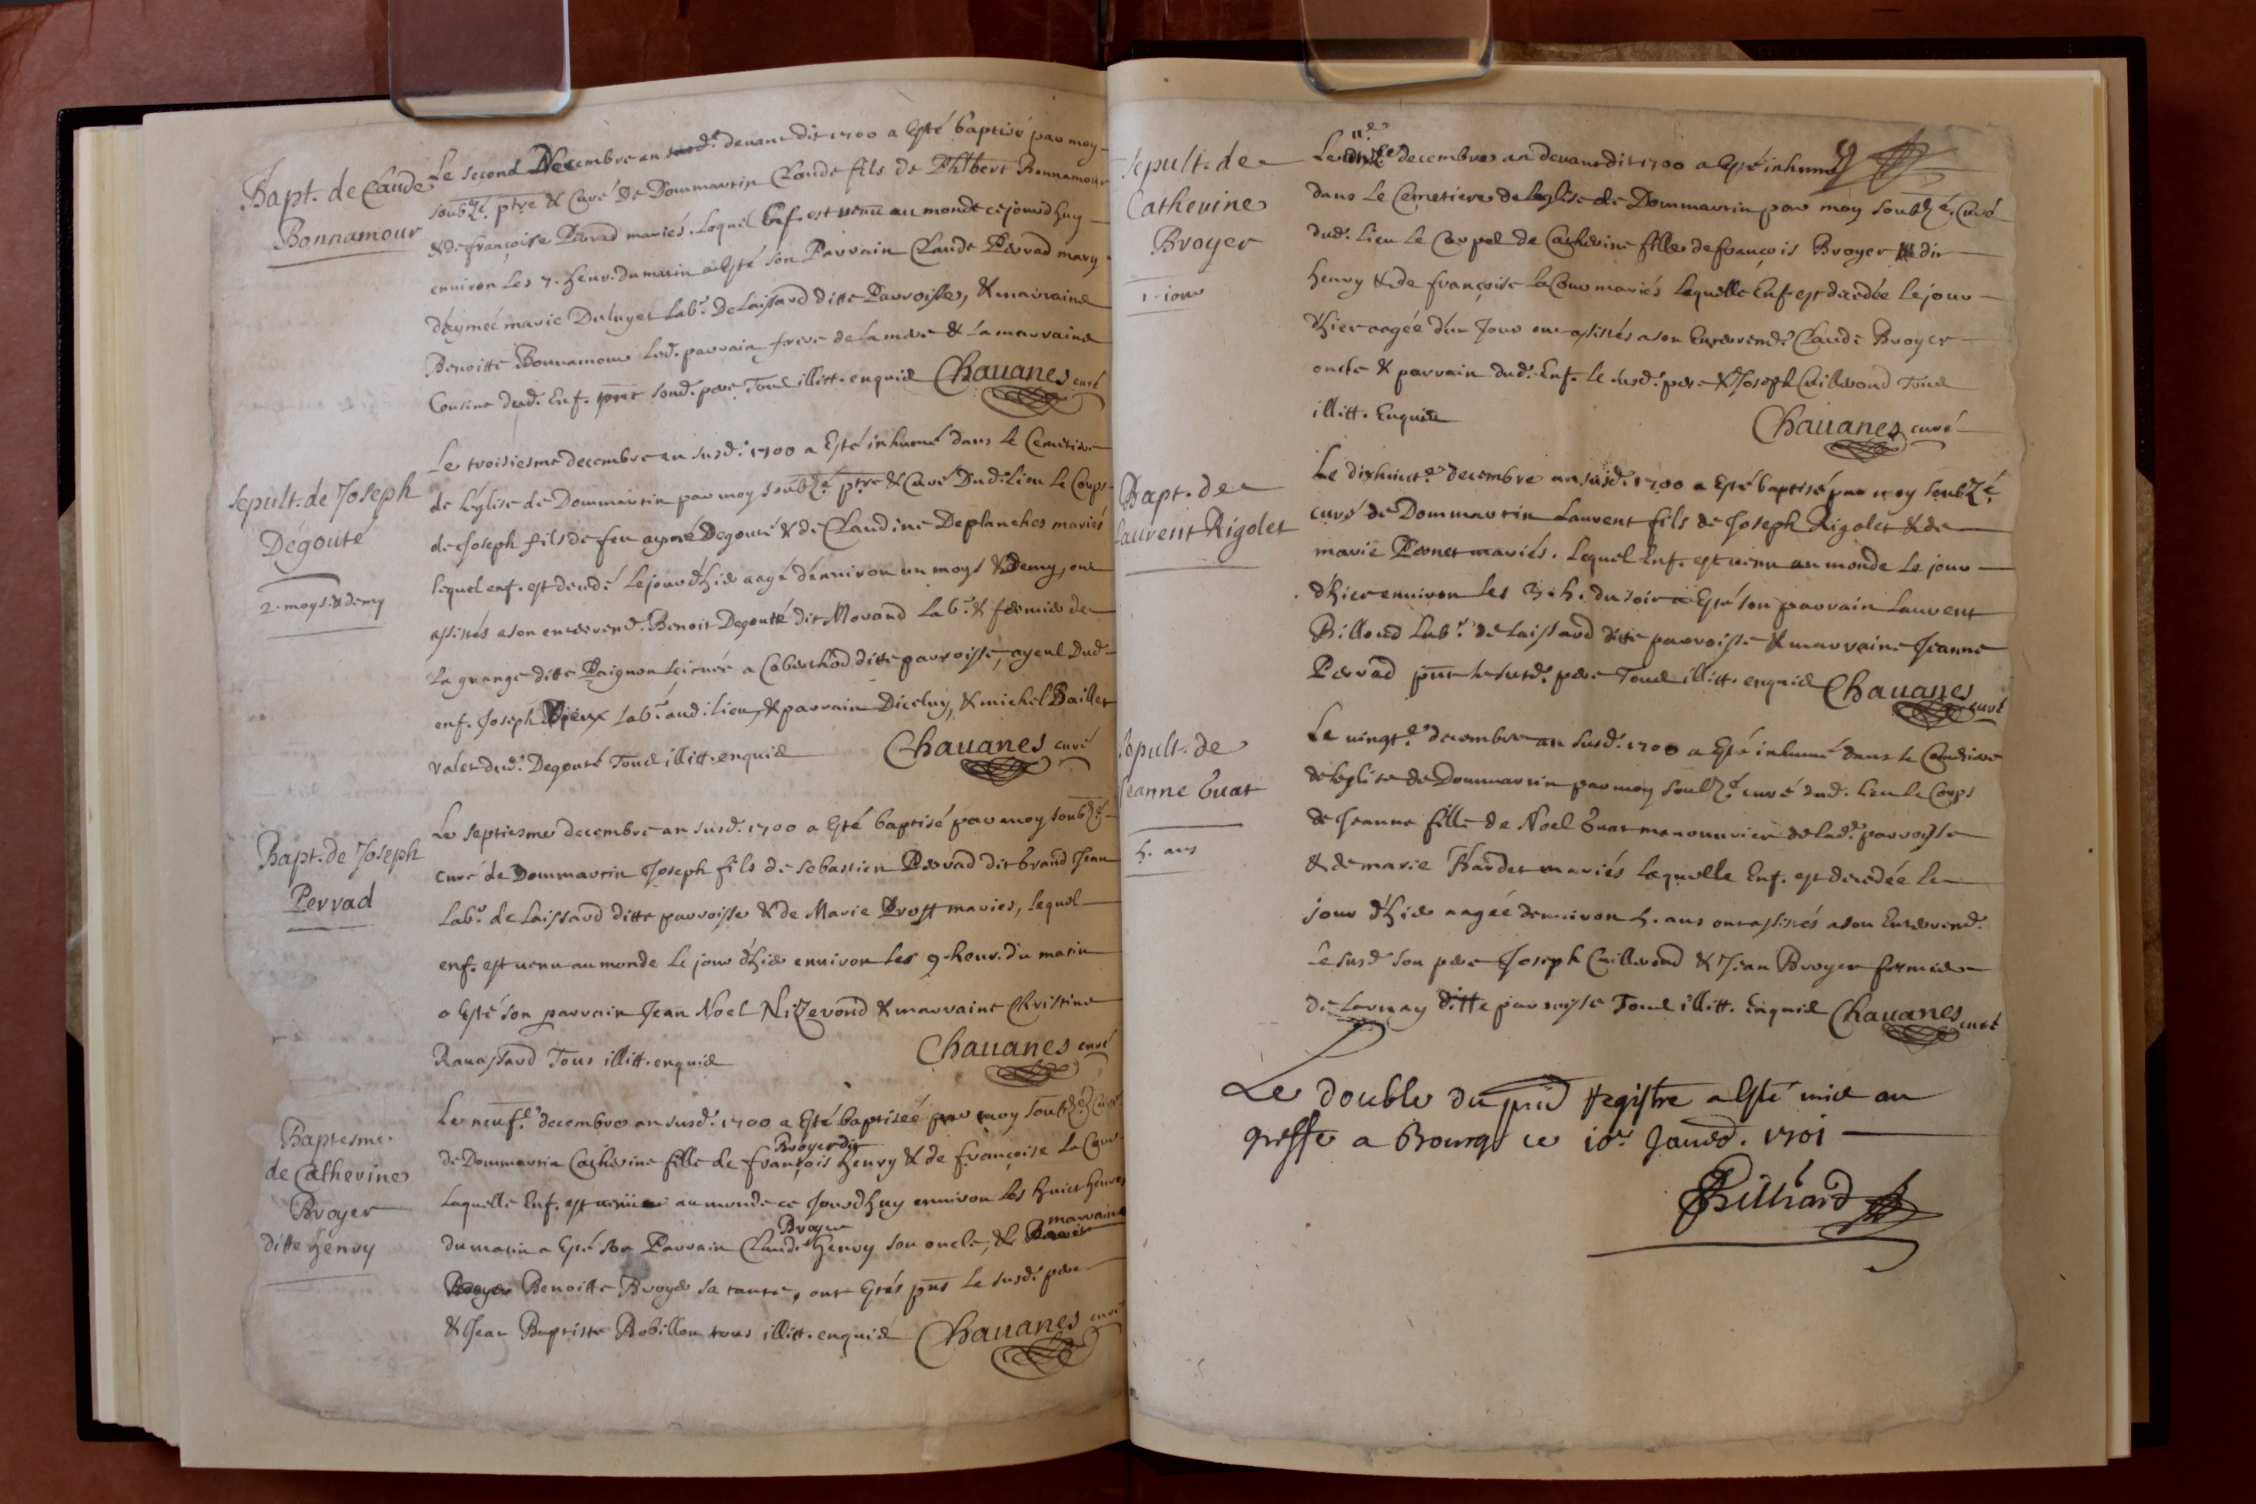 Bapt. de Claude
Bonnamour
Le second Decembre an susd. devant dit 1700 a Esté baptisé par moy
soubzé. ptre & Curé De Dommartin Claude fils de Philbert Bonnamour
& de françoise Perrad mariés. Lequel Enf. est venu au monde ce jourdhuy
environ Les 7. heur. du matin a Esté son Parrain Claude Perrad mary
d'aymeé marie Duluyet Labr. De Laissard ditte Parroisse, & marraine
Benoitte Bonnamour Led. parrain frere de la mere & La marraine
Cousine dud. Enf. pnt sond. pere Tous illitt. enquis Chauanes curé
Sepult. de Joseph
Degouté
2. moys & demy
Le troisiesme decembre an susd. 1700 a Esté inhumé dans le Cemetiere
de L'église de Dommartin par moy soubzé. ptre & Curé Dud. Lieu Le Corps
de Joseph fils de feu aymé Degouté & de Claudine Deplanches mariés
lequel enf. est decedé Le jour d'hier aagé d'environ un moys & Demy, ont
assistés a son enterrend. Benoit Degouté dit Morand Labr. & fermier de
La grange ditte Paignon scituée a Coberthod ditte parroisse, ayeul Dud.
enf. Joseph Vieux Labr. aud. Lieu, & parrain Diceluy, & michel Baillet
valet dud. Degouté Tous illitt. enquis Chauanes curé
Bapt. de Joseph
Perrad
Le septiesme decembre an susd. 1700 a Esté baptisé par moy soubzé.
curé de Dommartin Joseph fils de sebastien Perrad dit Grand Jean
Labr. de Laissard ditte parroisse & de Marie Prost mariés, lequel
enf. est venu au monde Le jour d'hier environ Les 9. heur. du matin
a Esté son parrain Jean Noel Nizerond & marraine Christine
Rauassard Tous illitt. enquis Chauanes curé
Baptesme.
de Catherine
Broyer
ditte henry
Le neufe. decembre an susd. 1700 a Esté baptiseé par moy soubzé. Curé
Broyer dit
de Dommartin Catherine fille de françois henry & de françoise La Cour
Laquelle Enf. est venüe au monde ce Jourdhuy environ Les huict heures
Broyer marraine
du matin a Esté son Parrain Claude henry son oncle, &
Benoitte Broyer sa tante, ont Estés pnts Le susd. pere
& Jean Baptiste Robillon tous illitt. enquis Chauanes curé
Sepult. de
Catherine
Broyer
1. iour
11e.
Le decembre an devant dit 1700 a Esté inhumé
dans Le Cemetiere de Leglise de Dommartin par moy soubzé. Curé
dud. Lieu Le Corps de Catherine fille de françois Broyer dit
henry & de françoise la Cour mariés Laquelle Enf. est decedée Le jour
d'hier aagée d'un Jour ont assistés a son Enterrend. Claude Broyer
oncle & parrain dud. Enf. Le susd. pere & Joseph Cuillerond Tous
illitt. Enquis Chauanes curé
Bapt. de
Laurent Rigolet
Le dixhuicte. decembre an susd. 1700 a Esté baptisé par moy soubzé.
curé de Dommartin Laurent fils de Joseph Rigolet & de
marie Pernet mariés. Lequel Enf. est venu au monde Le jour
d'hier environ Les 3. h. du soir a Esté son parrain Laurent
Billoud Labr. de Laissard ditte parroisse & marraine Jeanne
Perrad pnt Le susd. pere Tous illitt. enquis Chauanes curé
Sepult. de
Jeanne
h. ans
Le vingte. decembre an susd. 1700 a Esté inhumé dans Le Cemetiere
de Leglise de Dommartin par moy soubzé. curé dud. Lieu Le Corps
de Jeanne fille de Noel manouvrier de Lad. parroisse
& de marie mariés Laquelle Enf. est decedée Le
jour d'hier aagée denviron h. ans ont assistés a son Enterrend.
Le susd. son pere Joseph Cuillerond & Jean Broyer fermier
de Lornay ditte parroisse Tous illitt. Enquis Chauanes curé
Le double du pnt Registre a Esté mis au
greffe a Bourg ce 10e. Janvd. 1701
Billiard